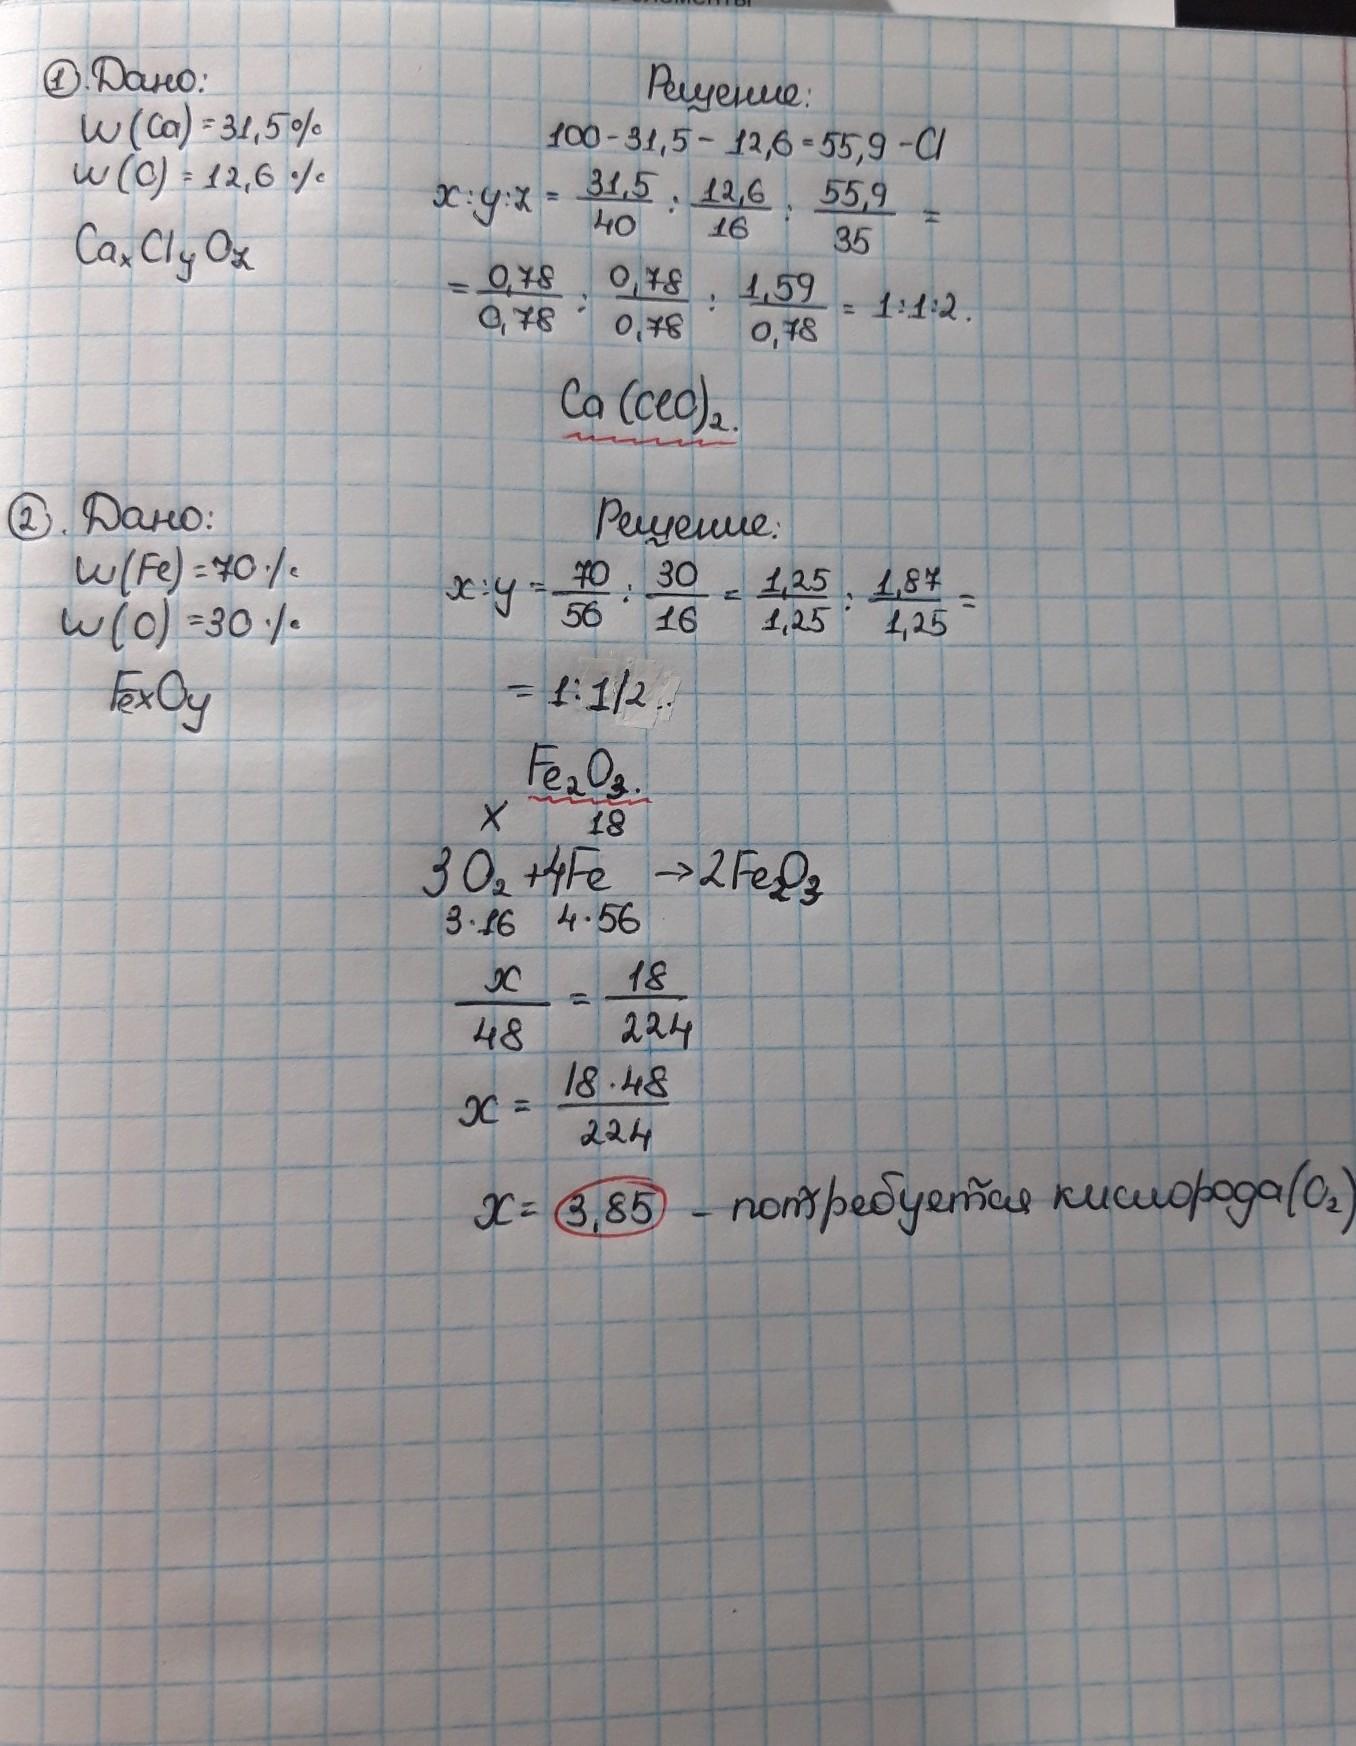 элементы
① Дано:
W(Ca) = 31,5 %
W(O) = 12,6 %
CaxClyOz
Решение:
100 - 31,5 - 12,6 = 55,9 - Cl
x:y:z = 31,5/40 : 12,6/16 : 55,9/35 =
= 0,78/0,78 : 0,78/0,78 : 1,59/0,78 = 1:1:2.
Ca(ClO)2.
②. Дано:
W(Fe) = 70 %
W(O) = 30 %
FexOy
Решение:
x:y = 70/56 : 30/16 = 1,25/1,25 : 1,87/1,25 =
= 1:1/2..
Fe2O3.
x 18
3O2 + 4Fe → 2Fe2O3
3·16 4·56
x/48 = 18/224
x = 18·48/224
x = 3,85 - потребуется кислорода (O2)